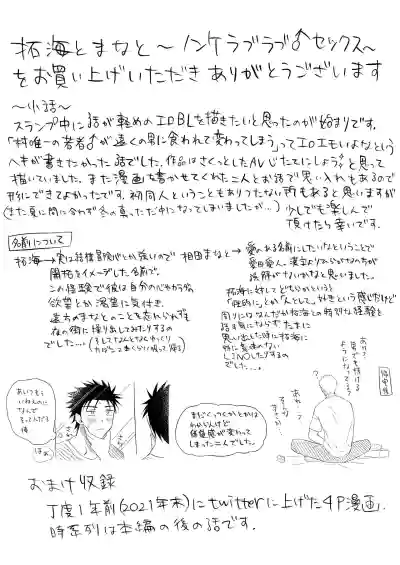 拓海とまなと〜ノンケラブラブ♂セックス〜
をお買い上げいただきありがとうございます
〜小話〜
スランプ中に話が軽めのエロBLを描きたいと思ったのが始まりです。
「村唯一の若者♂が遠くの男に食われて変わってしまう」ってエロエモいよなという
ヘキが書きたかった話でした。作品はさくっとしたAVじたてにしようと思って
描いていました。また漫画を書かせてくれた二人とお話で思い入れもあるので
形にできてよかったです。初同人ということもありつたない所もあると思いますが
(また夏に間に合わず冬の真っただ中になってしまいましたが…)少しでも楽しんで
頂けたら幸いです。
名前について
拓海→実は結構冒険心とか強いので
開拓をイメージした名前で。
この経験で彼は自分の心やカラダの
欲望とか渇望に気付き、
まなとのことを忘れられず
夜の街に繰り出してみたりするの
でした…
相田まなと→愛のある名前にしたいなということで
愛田愛人。漢字よりひらがなの方が
誤解がないかなと思いました。
拓海に対してどちらかというと
「性的に」とか「人として」好きという感じだけど
周りにはなんだか拓海との特別な経験を
話す気にならず、たまに
思い出した時に拓海に
特に意味のない
LINOしたりするの
でした…。
あいつもういねんのに
なんで
そってんだろ
俺
はぁ
まだくっつくかとかは
わからんけど
価値観が変わって
しまった二人でした。
あれ…?
おまけ収録
丁度1年前(2021年末)にtwitterに上げた4P漫画.
時系列は本編の後の話です.